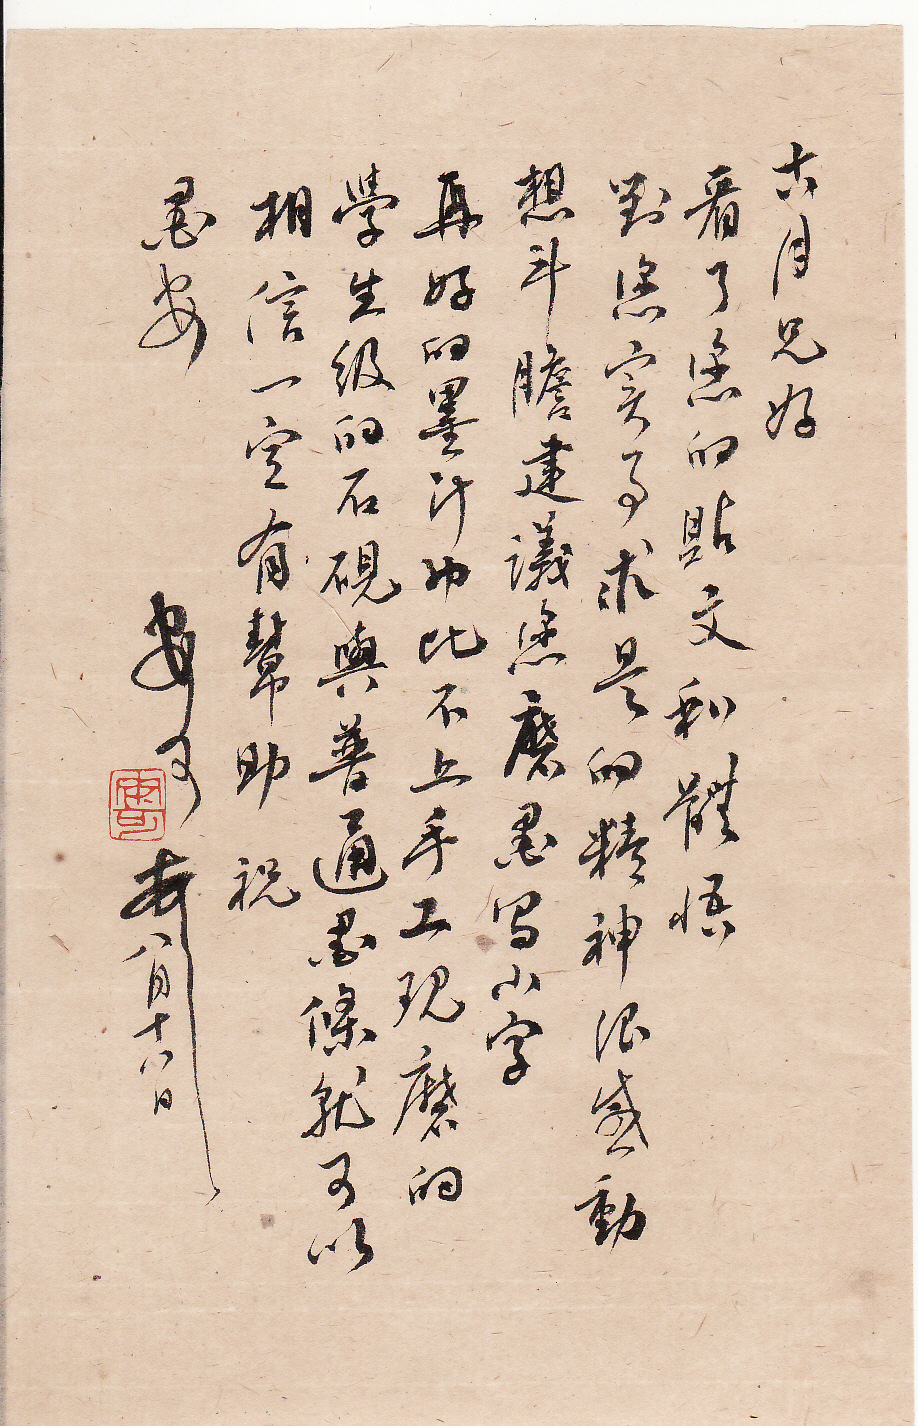 古月兄好
看了您的貼文和體悟
對您實事求是的精神很感動
想斗膽建議您磨墨写小字
再好的墨汁也比不上手工現磨的
學生級的石硯與普通墨條就可以
相信一定有幫助 祝
墨安
安可 八月十八日